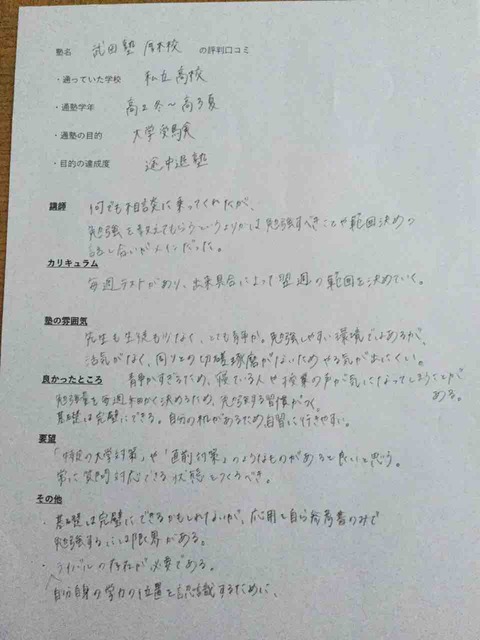 塾名 武田塾 厚木校 の評判口コミ
・通っていた学校 私立高校
・通塾学年 高2冬〜高3夏
・通塾の目的 大学受験
・目的の達成度 途中退塾
講師 何でも相談に乗ってくれたが、
勉強を教えてもらうというよりかは勉強すべきことや範囲決めの
話し合いがメインだった。
カリキュラム
毎週テストがあり、出来具合によって翌週の範囲を決めていく。
塾の雰囲気
先生も生徒も少なく、とても静か。勉強しやすい環境ではあるが、
活気がなく、周りとの切磋琢磨がないためやる気が出にくい。
良かったところ 静かすぎるため、寝ている人や授業の声が気になってしまうことが
ある。
勉強量を毎週細かく決めるため、勉強する習慣がつく。
基礎は完璧にできる。自分の机があるため自習に行きやすい。
要望
「特定の大学対策」や「直前対策」のようなものがあると良いと思う。
常に質問対応できる状態をつくるべき。
その他
・基礎は完璧にできるかもしれないが、応用を自分参考書のみで
勉強するには限界がある。
・ライバルの存在が必要である。
自分自身の学力の位置を認識するために、